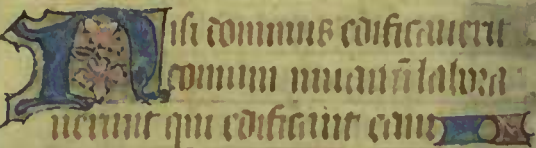 Nisi dominus edificauerit
domum in uanū labora
uerunt qui edificant eam